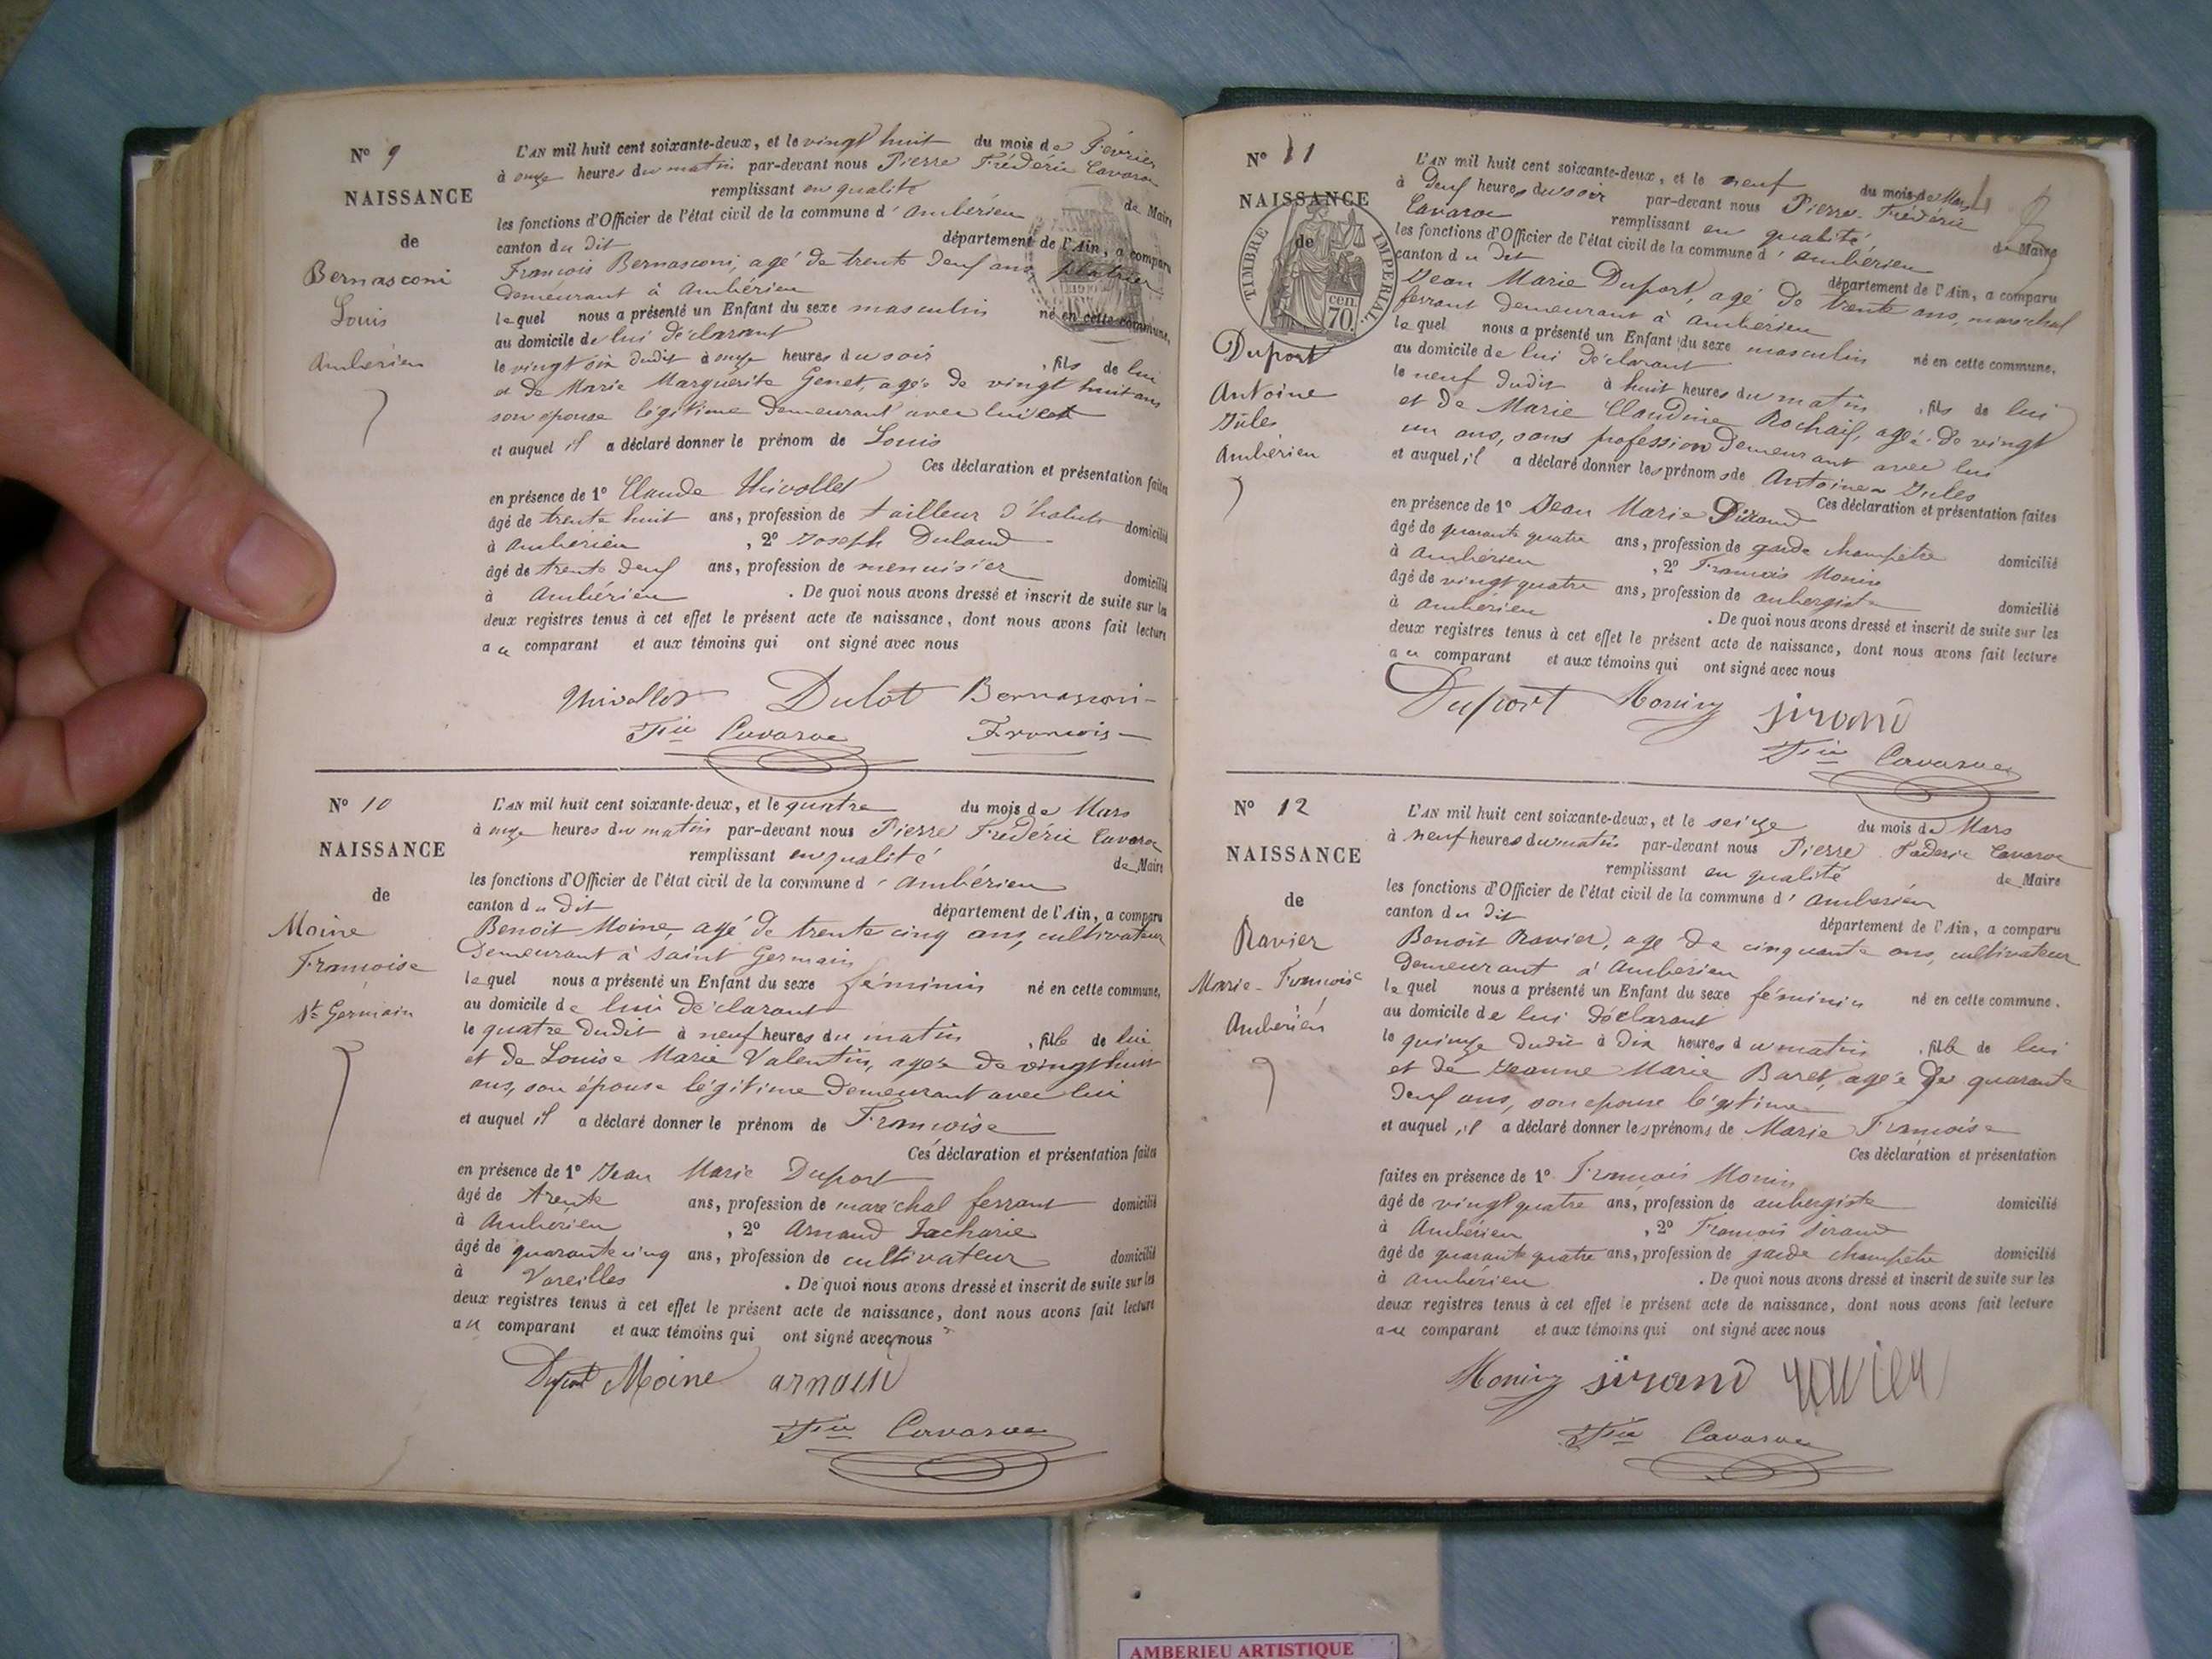 N° 9
NAISSANCE
de
Bernasconi
Louis
Ambérieu
L'AN mil huit cent soixante-deux, et le vingt huit du mois de Février
à onze heures du matin par-devant nous Pierre Frédéric Cavaroc
remplissant en qualité de Maire
les fonctions d'Officier de l'état civil de la commune d'Ambérieu
canton du dit département de l'Ain, a comparu
François Bernasconi, agé de trente deux ans, platrier
demeurant à Ambérieu
lequel nous a présenté un Enfant du sexe masculin né en cette commune,
au domicile de lui déclarant
le vingt six dudit à onze heures du soir, fils de lui
et de Marie Marguerite Genet, agée de vingt huit ans
son épouse légitime demeurant avec lui
et auquel il a déclaré donner le prénom de Louis
Ces déclaration et présentation faites
en présence de 1° Claude Thivollet
âgé de trente huit ans, profession de tailleur d'habits domicilié
à Ambérieu, 2° Joseph
âgé de trente deux ans, profession de menuisier domicilié
à Ambérieu. De quoi nous avons dressé et inscrit de suite sur les
deux registres tenus à cet effet le présent acte de naissance, dont nous avons fait lecture
au comparant et aux témoins qui ont signé avec nous
Thivollet Dulot Bernasconi
Fric Cavaroc François
N° 10
NAISSANCE
de
Moine
Françoise
St Germain
L'AN mil huit cent soixante-deux, et le quatre du mois de Mars
à onze heures du matin par-devant nous Pierre Frédéric Cavaroc
remplissant en qualité de Maire
les fonctions d'Officier de l'état civil de la commune d'Ambérieu
canton du dit département de l'Ain, a comparu
Benoit Moine, agé de trente cinq ans, cultivateur
demeurant à Saint Germain
lequel nous a présenté un Enfant du sexe féminin né en cette commune,
au domicile de lui déclarant
le quatre dudit à neuf heures du matin, fille de lui
et de Louise Marie Valentin, agée de vingt huit
ans, son épouse légitime demeurant avec lui
et auquel il a déclaré donner le prénom de Françoise
Ces déclaration et présentation faites
en présence de 1° Jean Marie Duport
âgé de trente ans, profession de maréchal ferrant domicilié
à Ambérieu, 2° Arnaud Zacharie
âgé de quarante cinq ans, profession de cultivateur domicilié
à Vareilles. De quoi nous avons dressé et inscrit de suite sur les
deux registres tenus à cet effet le présent acte de naissance, dont nous avons fait lecture
au comparant et aux témoins qui ont signé avec nous
Duport Moine arnaud
Fric Cavaroc
N° 11
NAISSANCE
de
TIMBRE IMPERIAL
70 cen.
Duport
Antoine
Jules
Ambérieu
L'AN mil huit cent soixante-deux, et le neuf du mois de Mars
à Deux heures du soir par-devant nous Pierre-Frédéric
Cavaroc remplissant en qualité de Maire
les fonctions d'Officier de l'état civil de la commune d'Ambérieu
canton du dit département de l'Ain, a comparu
Jean Marie Duport, agé de trente ans, maréchal
ferrant demeurant à Ambérieu
lequel nous a présenté un Enfant du sexe masculin né en cette commune,
au domicile de lui déclarant
le neuf dudit à huit heures du matin, fils de lui
et de Marie Claudine Rochaif, agée de vingt
un ans, sans profession demeurant avec lui
et auquel il a déclaré donner les prénoms de Antoine Jules
Ces déclaration et présentation faites
en présence de 1° Jean Marie
âgé de quarante quatre ans, profession de garde champêtre domicilié
à Ambérieu, 2° François Monin
âgé de vingt quatre ans, profession de aubergiste domicilié
à Ambérieu. De quoi nous avons dressé et inscrit de suite sur les
deux registres tenus à cet effet le présent acte de naissance, dont nous avons fait lecture
au comparant et aux témoins qui ont signé avec nous
Duport Monin sirand
Fric Cavaroc
N° 12
NAISSANCE
de
Ravier
Marie-Françoise
Ambérieu
L'AN mil huit cent soixante-deux, et le seize du mois de Mars
à neuf heures du matin par-devant nous Pierre Fréderic Cavaroc
remplissant en qualité de Maire
les fonctions d'Officier de l'état civil de la commune d'Ambérieu
canton du dit département de l'Ain, a comparu
Benoit Ravier, agé de cinquante ans, cultivateur
demeurant à Ambérieu
lequel nous a présenté un Enfant du sexe féminin né en cette commune.
au domicile de lui déclarant
le quinze dudit à dix heures du matin, fille de lui
et de Jeanne Marie Baret, agée de quarante
deux ans, son épouse légitime
et auquel il a déclaré donner les prénoms de Marie Françoise
Ces déclaration et présentation
faites en présence de 1° François Monin
âgé de vingt quatre ans, profession de aubergiste domicilié
à Ambérieu, 2° François Sirand
âgé de quarante quatre ans, profession de garde champêtre domicilié
à Ambérieu. De quoi nous avons dressé et inscrit de suite sur les
deux registres tenus à cet effet le présent acte de naissance, dont nous avons fait lecture
au comparant et aux témoins qui ont signé avec nous
Monin sirand ravier
Fric Cavaroc
AMBERIEU ARTISTIQUE